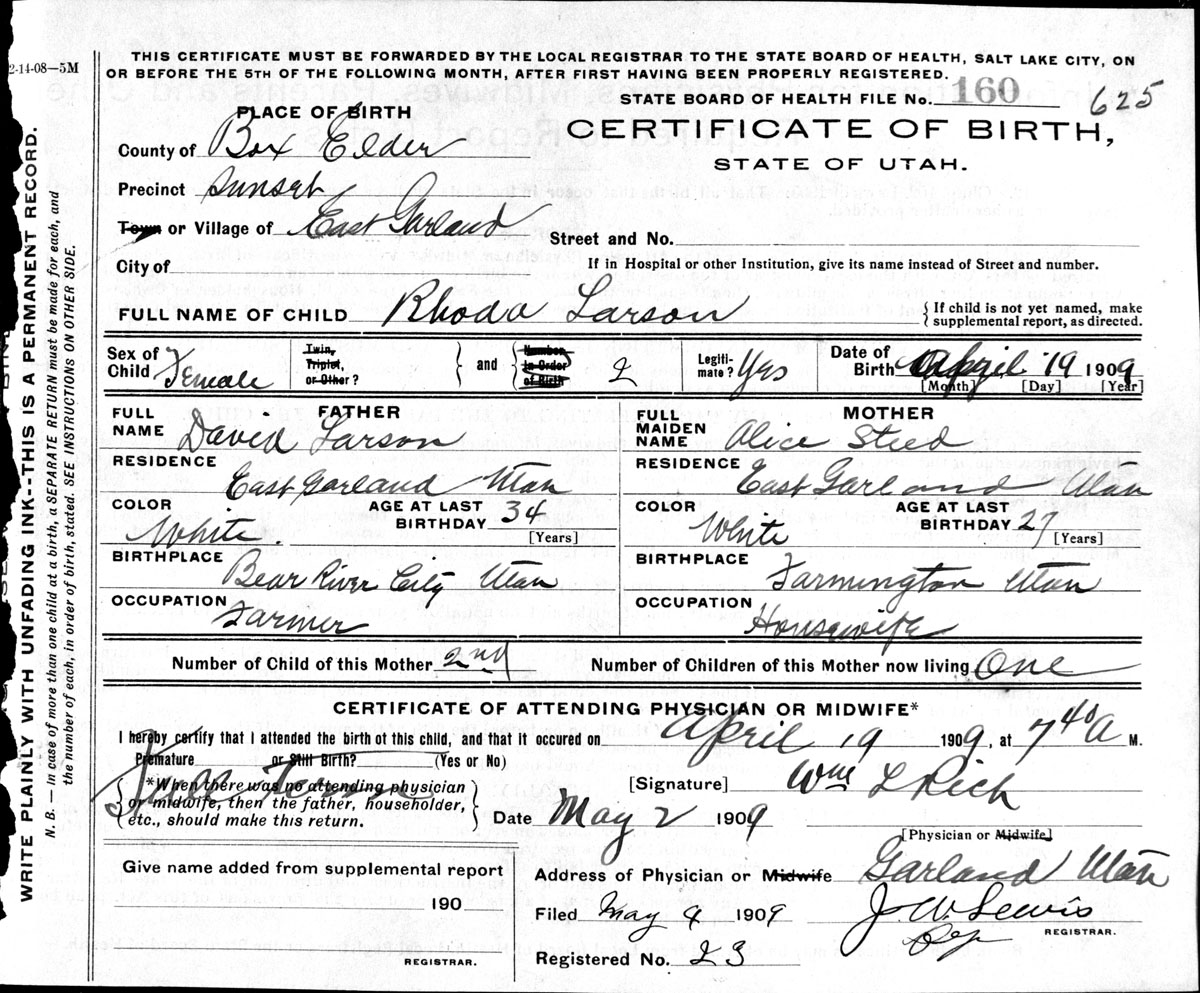 2-14-08—5M
THIS CERTIFICATE MUST BE FORWARDED BY THE LOCAL REGISTRAR TO THE STATE BOARD OF HEALTH, SALT LAKE CITY, ON
OR BEFORE THE 5TH OF THE FOLLOWING MONTH, AFTER FIRST HAVING BEEN PROPERLY REGISTERED.
STATE BOARD OF HEALTH FILE No. 160 625
PLACE OF BIRTH
CERTIFICATE OF BIRTH,
STATE OF UTAH.
County of Box Elder
Precinct Sunset
Town or Village of East Garland
Street and No.
City of
If in Hospital or other Institution, give its name instead of Street and number.
FULL NAME OF CHILD Rhoda Larson
{ If child is not yet named, make
supplemental report, as directed.
Sex of
Child Female
Twin,
Triplet,
or Other? } and { Number
in Order
of Birth 2
Legiti-
mate? Yes
Date of
Birth April 19 1909
[Month] [Day] [Year]
FATHER
FULL
NAME David Larson
RESIDENCE
East Garland Utah
COLOR
White
AGE AT LAST
BIRTHDAY 34
[Years]
BIRTHPLACE
Bear River City Utah
OCCUPATION
Farmer
MOTHER
FULL
MAIDEN
NAME Alice Steed
RESIDENCE
East Garland Utah
COLOR
White
AGE AT LAST
BIRTHDAY 27
[Years]
BIRTHPLACE
Farmington Utah
OCCUPATION
Housewife
Number of Child of this Mother 2nd
Number of Children of this Mother now living One
CERTIFICATE OF ATTENDING PHYSICIAN OR MIDWIFE*
I hereby certify that I attended the birth of this child, and that it occured on April 19 1909, at 7 40 A M.
Premature or Still Birth? (Yes or No)
Term
{ *When there was no attending physician
or midwife, then the father, householder,
etc., should make this return. }
[Signature] Wm L Rich
Date May 2 1909
[Physician or Midwife]
Give name added from supplemental report
190
REGISTRAR.
Address of Physician or Midwife Garland Utah
Filed May 4 1909
J. W. Lewis
Dep
REGISTRAR.
Registered No. 23
WRITE PLAINLY WITH UNFADING INK--THIS IS A PERMANENT RECORD.
N. B. — In case of more than one child at a birth, a SEPARATE RETURN must be made for each, and
the number of each, in order of birth, stated. SEE INSTRUCTIONS ON OTHER SIDE.